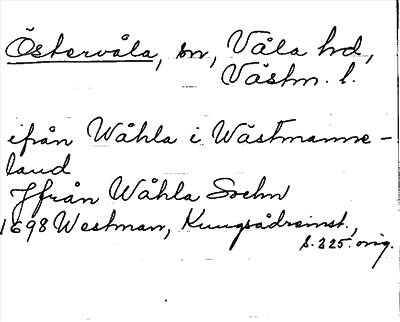 Östervåla, sn, Våla hd,
Västm. l.
ifrån Wåhla i Wästmanne-
land
Jfrån Wåhla Sochn
1698 Westman, Kungsådreinst.,
s. 225. orig.